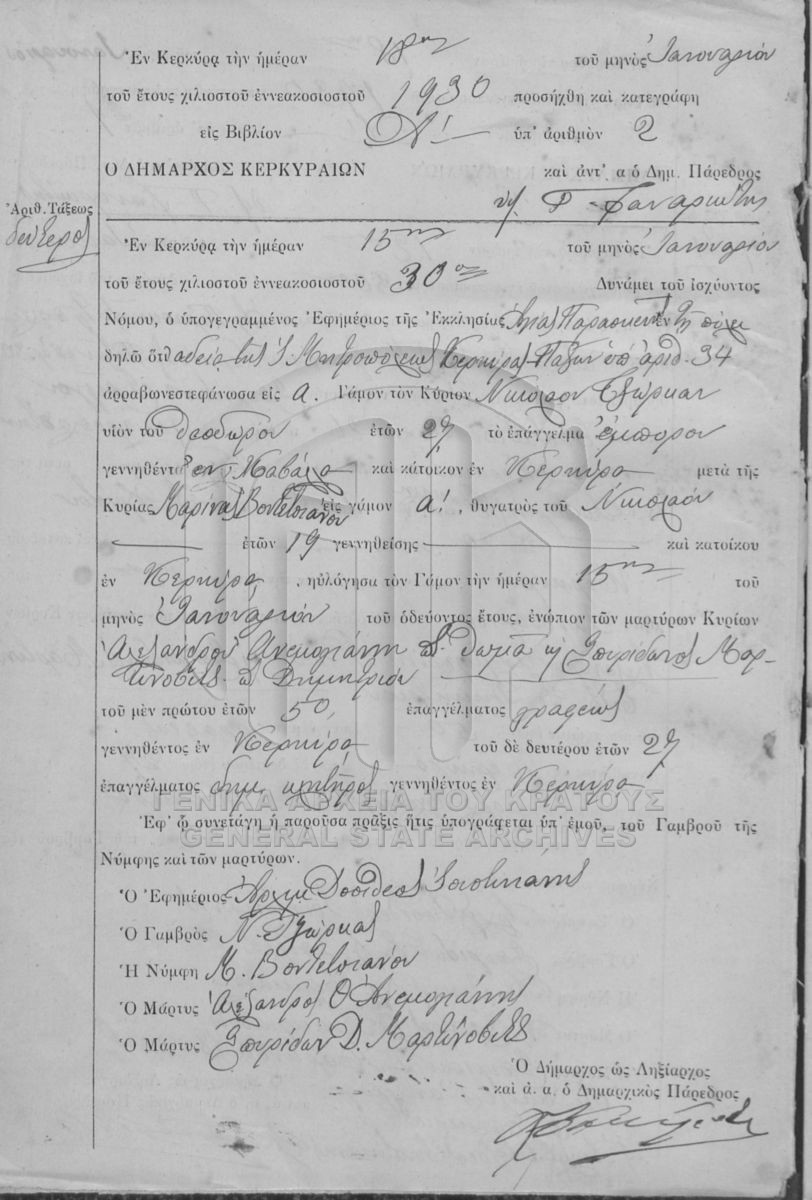 Ἐν Κερκύρᾳ τὴν ἡμέραν 18ην τοῦ μηνὸς Ἰανουαρίου
τοῦ ἔτους χιλιοστοῦ ἐννεακοσιοστοῦ 1930 προσήχθη καὶ κατεγράφη
εἰς Βιβλίον Α! ὑπ' ἀριθμὸν 2
Ο ΔΗΜΑΡΧΟΣ ΚΕΡΚΥΡΑΙΩΝ καὶ ἀντ' α ὁ Δημ. Πάρεδρος
Ἀριθ. Τάξεως
δεύτερος
Ἐν Κερκύρᾳ τὴν ἡμέραν 15ην τοῦ μηνὸς Ἰανουαρίου
τοῦ ἔτους χιλιοστοῦ ἐννεακοσιοστοῦ 30ου Δυνάμει τοῦ ἰσχύοντος
Νόμου, ὁ ὑπογεγραμμένος Ἐφημέριος τῆς Ἐκκλησίας Ἁγίας Παρασκευῆς ἐν τῇ πόλει
δηλῶ ὅτι ἀδείᾳ τῆς Ἱ. Μητροπόλεως Κερκύρας Παξῶν ὑπ' ἀριθ. 34
ἀρραβωνεστεφάνωσα εἰς Α. Γάμον τὸν Κύριον Νικόλαον Τζώρκαν
υἱὸν τοῦ Θεοδώρου ἐτῶν 27 τὸ ἐπάγγελμα ἔμπορον
γεννηθέντα ἐν Καβάλᾳ καὶ κάτοικον ἐν Κερκύρᾳ μετὰ τῆς
Κυρίας Μαρίνας Βοντετσιάνου εἰς γάμον Α!, θυγατρὸς τοῦ Νικολάου
ἐτῶν 19 γεννηθείσης καὶ κατοίκου
ἐν Κερκύρᾳ, ηὐλόγησα τὸν Γάμον τὴν ἡμέραν 15ην τοῦ
μηνὸς Ἰανουαρίου τοῦ ὁδεύοντος ἔτους, ἐνώπιον τῶν μαρτύρων Κυρίων
Ἀλεξάνδρου Ἀνεμογιάννη Θωμᾶ Σπυρίδωνος Μαρ-
τίνοβιτς Δημητρίου
τοῦ μὲν πρώτου ἐτῶν 50, ἐπαγγέλματος γραφέως
γεννηθέντος ἐν Κερκύρᾳ τοῦ δὲ δευτέρου ἐτῶν 27
ἐπαγγέλματος δημ. κλητῆρος γεννηθέντος ἐν Κερκύρᾳ
ΓΕΝΙΚΑ ΑΡΧΕΙΑ ΤΟΥ ΚΡΑΤΟΥΣ
Ἐφ' ᾧ συνετάγη ἡ παροῦσα πρᾶξις ἥτις ὑπογράφεται ὑπ' ἐμοῦ, τοῦ Γαμβροῦ τῆς
GENERAL STATE ARCHIVES
Νύμφης καὶ τῶν μαρτύρων.
Ὁ Ἐφημέριος Ἀρχιμ Δοσίθεος
Ὁ Γαμβρὸς Ν. Τζώρκας
Ἡ Νύμφη Μ. Βοντετσιάνου
Ὁ Μάρτυς Ἀλέξανδρος Θ Ἀνεμογιάννης
Ὁ Μάρτυς Σπυρίδων Δ. Μαρτίνοβιτς
Ὁ Δήμαρχος ὡς Ληξίαρχος
καὶ ἀ. α. ὁ Δημαρχικὸς Πάρεδρος